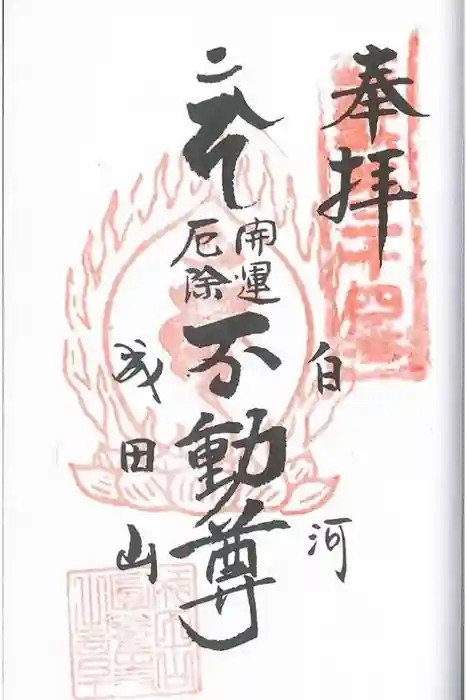 奉拝
白河
開運
厄除
不動尊
成田山